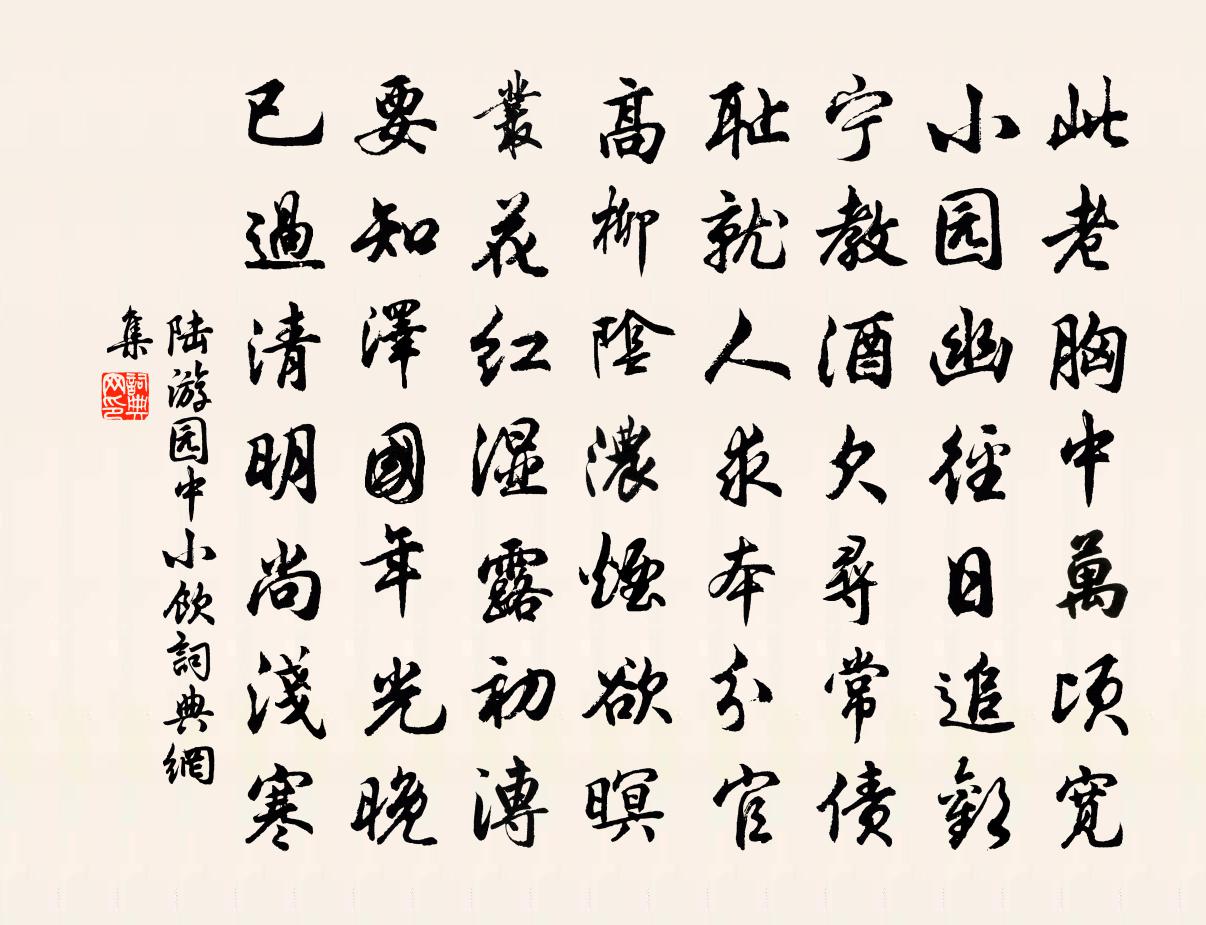 此老胸中萬頃寬
小园幽徑日追歡
宁教酒欠尋常債
耻就人求本分官
高柳陰濃煙欲暝
叢花红濕露初漙
要知澤國年光晚
已過清明尚淺寒
陆游园中小飲詞典網
集
詞典网印